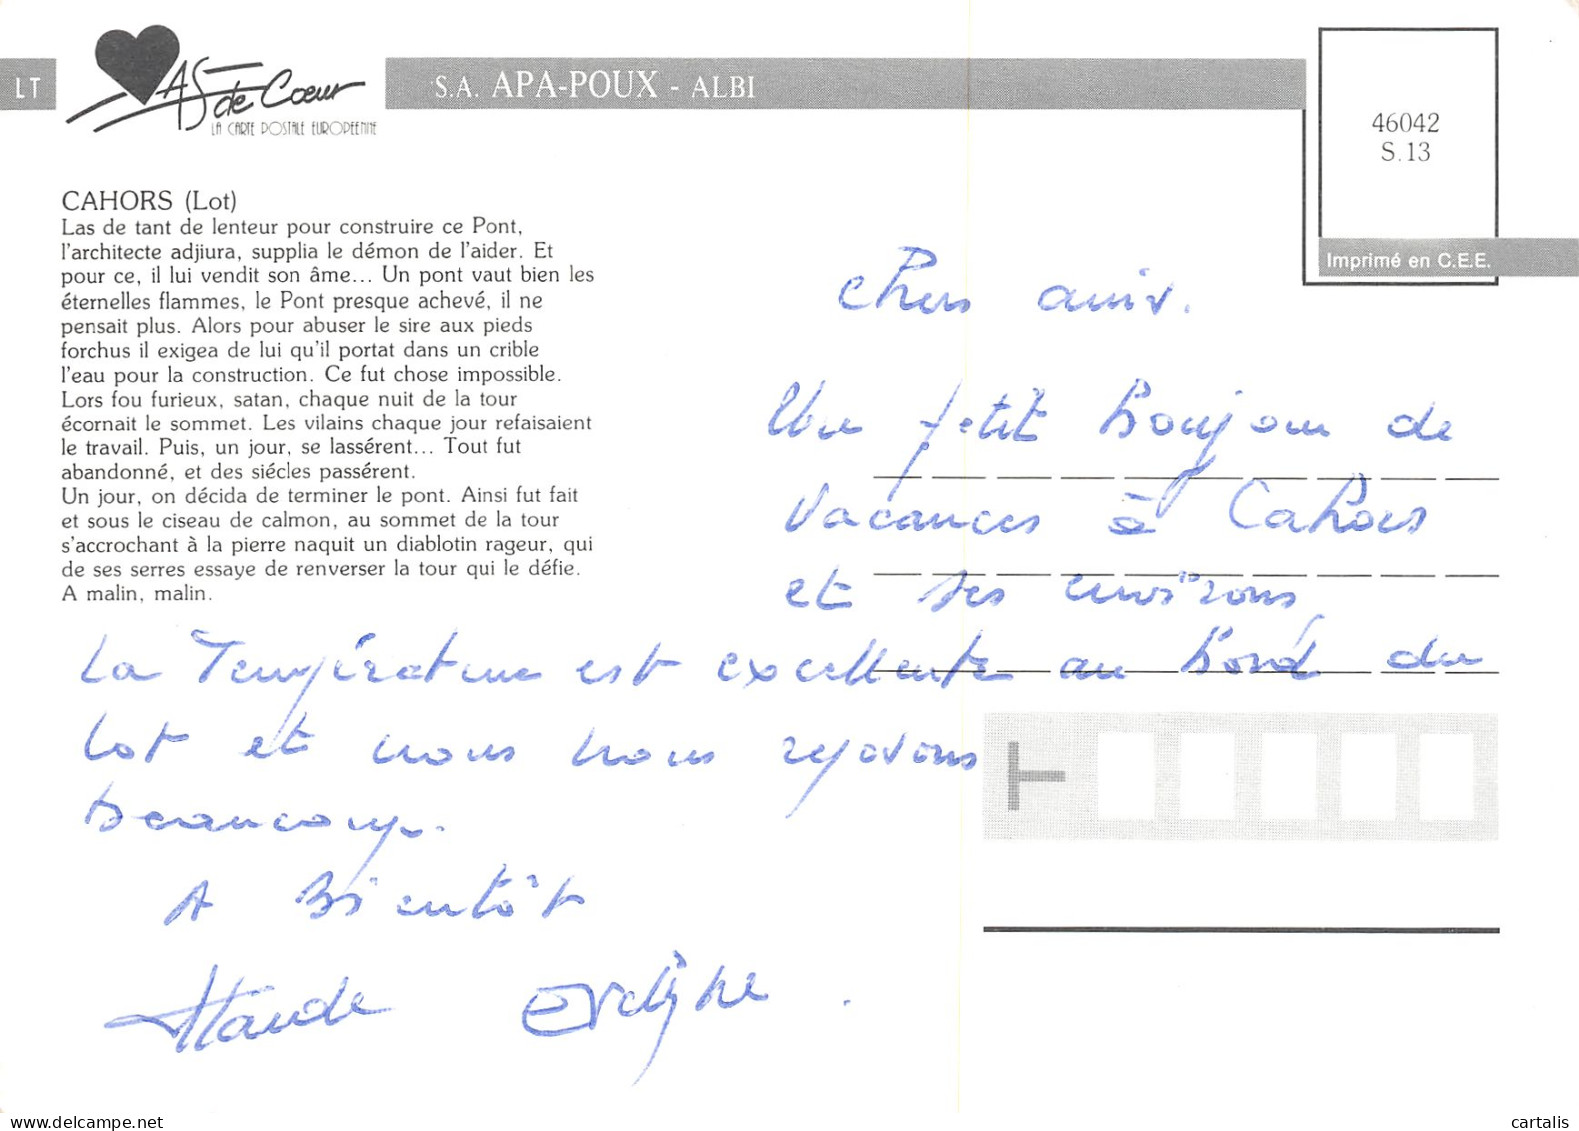 LT
As de Cœur
LA CARTE POSTALE EUROPEENNE
S.A. APA-POUX - ALBI
46042
S.13
Imprimé en C.E.E.
CAHORS (Lot)
Las de tant de lenteur pour construire ce Pont,
l'architecte adjiura, supplia le démon de l'aider. Et
pour ce, il lui vendit son âme... Un pont vaut bien les
éternelles flammes, le Pont presque achevé, il ne
pensait plus. Alors pour abuser le sire aux pieds
forchus il exigea de lui qu'il portat dans un crible
l'eau pour la construction. Ce fut chose impossible.
Lors fou furieux, satan, chaque nuit de la tour
écornait le sommet. Les vilains chaque jour refaisaient
le travail. Puis, un jour, se lassérent... Tout fut
abandonné, et des siécles passérent.
Un jour, on décida de terminer le pont. Ainsi fut fait
et sous le ciseau de calmon, au sommet de la tour
s'accrochant à la pierre naquit un diablotin rageur, qui
de ses serres essaye de renverser la tour qui le défie.
A malin, malin.
Chers amis.
Un petit Bonjour de
Vacances à Cahors
et ses environs
La Température est excellente au Bord du
Lot et nous nous reposons
Beaucoup.
A Bientôt
Claude Evelyne.
cartalis
www.delcampe.net